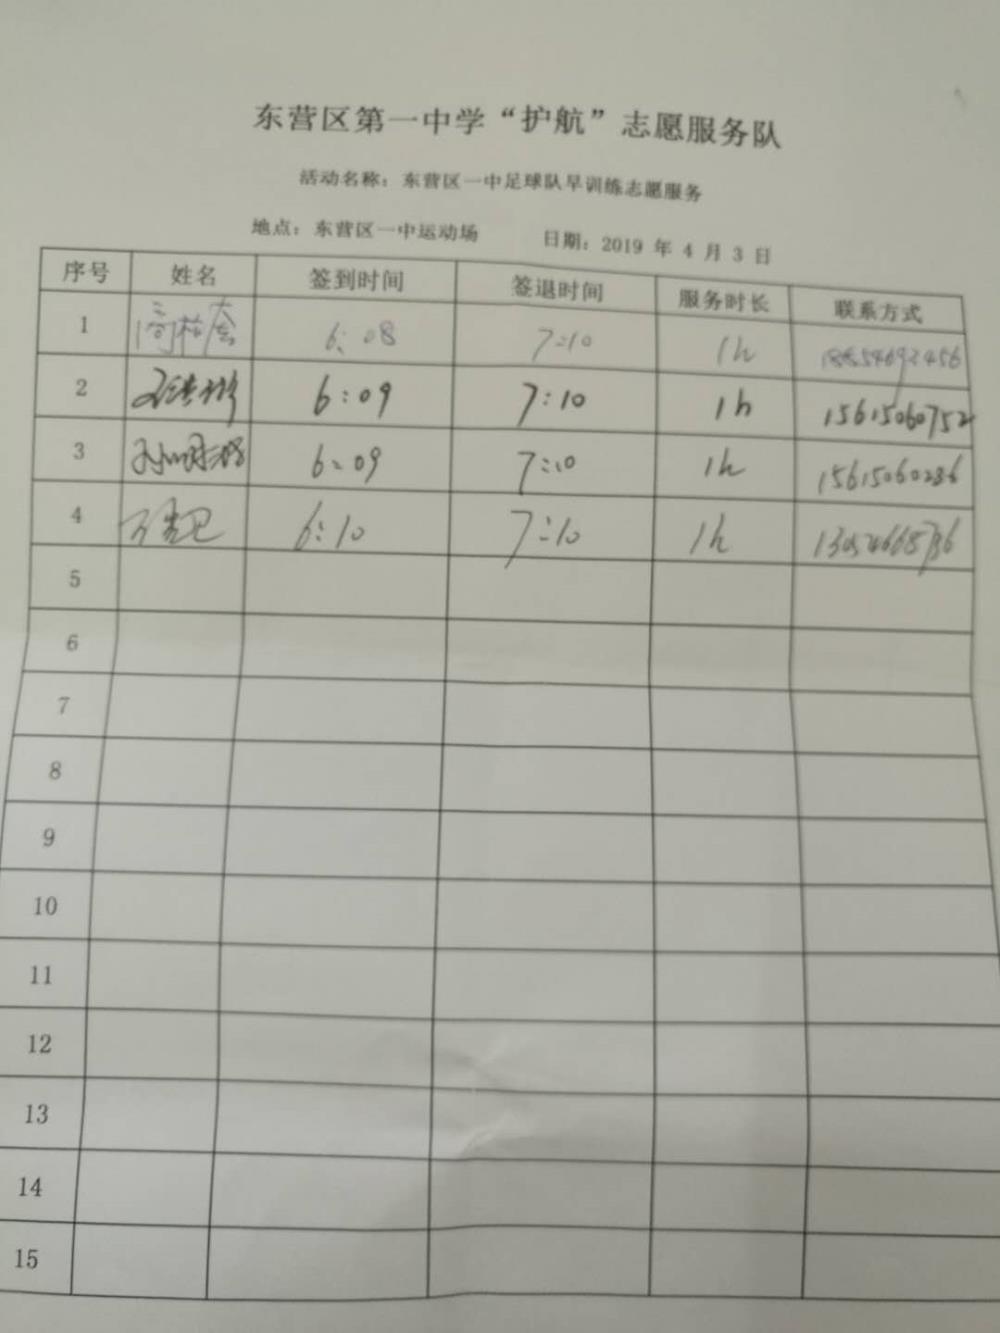 东营区第一中学“护航”志愿服务队
活动名称：东营区一中足球队早训练志愿服务
地点：东营区一中运动场 日期：2019 年 4 月 3 日
序号 姓名 签到时间 签退时间 服务时长 联系方式
1 6:08 7:10 1h
2 6:09 7:10 1h 15615060752
3 6:09 7:10 1h 15615060286
4 6:10 7:10 1h
5
6
7
8
9
10
11
12
13
14
15